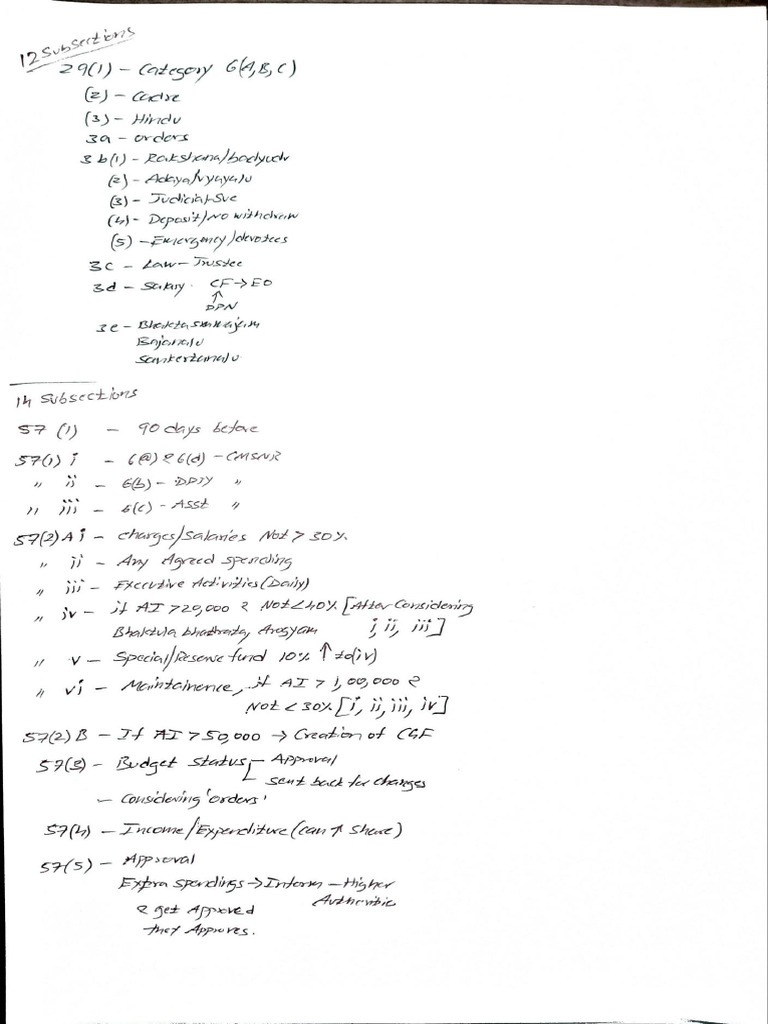 12 Subsections
29(1) - Category 6(A,B,C)
(2) - Cadre
(3) - Hindu
3a - orders
3b(1) - Rakshana/badyudu
(2) - Adaya/vyayalu
(3) - Judicial-Sue
(4) - Deposit/No withdraw
(5) - Emergency/devotees
3c - Law - Trustee
3d - Salary. CF → EO
↑
DPN
3e - Bhaktasamajam
Bajanalu
Sankertanalu
14 Subsections
57 (1) - 90 days before
57(1) i - 6(a) & 6(d) - CMSNR
" ii - 6(b) - DPTY "
" iii - 6(c) - Asst "
57(2)A i - Charges/Salaries Not > 30%.
" ii - Any Agreed spending
" iii - Executive Activities (Daily)
" iv - if AI > 20,000 & Not < 40% [After Considering
Bhaktula bhadrata, Arogyam i, ii, iii]
" v - Special/Reserve fund 10% ↑ to (iv)
" vi - Maintainence, if AI > 1,00,000 &
Not < 30% [i, ii, iii, iv]
57(2) B - If AI > 50,000 → Creation of CGF
57(3) - Budget Status - Approval
Sent back for changes
- Considering 'orders'
57(4) - Income/Expenditure (can ↑ Share)
57(5) - Approval
Extra spendings → Inform - Higher
Authorities
& get Approved
they Approves.